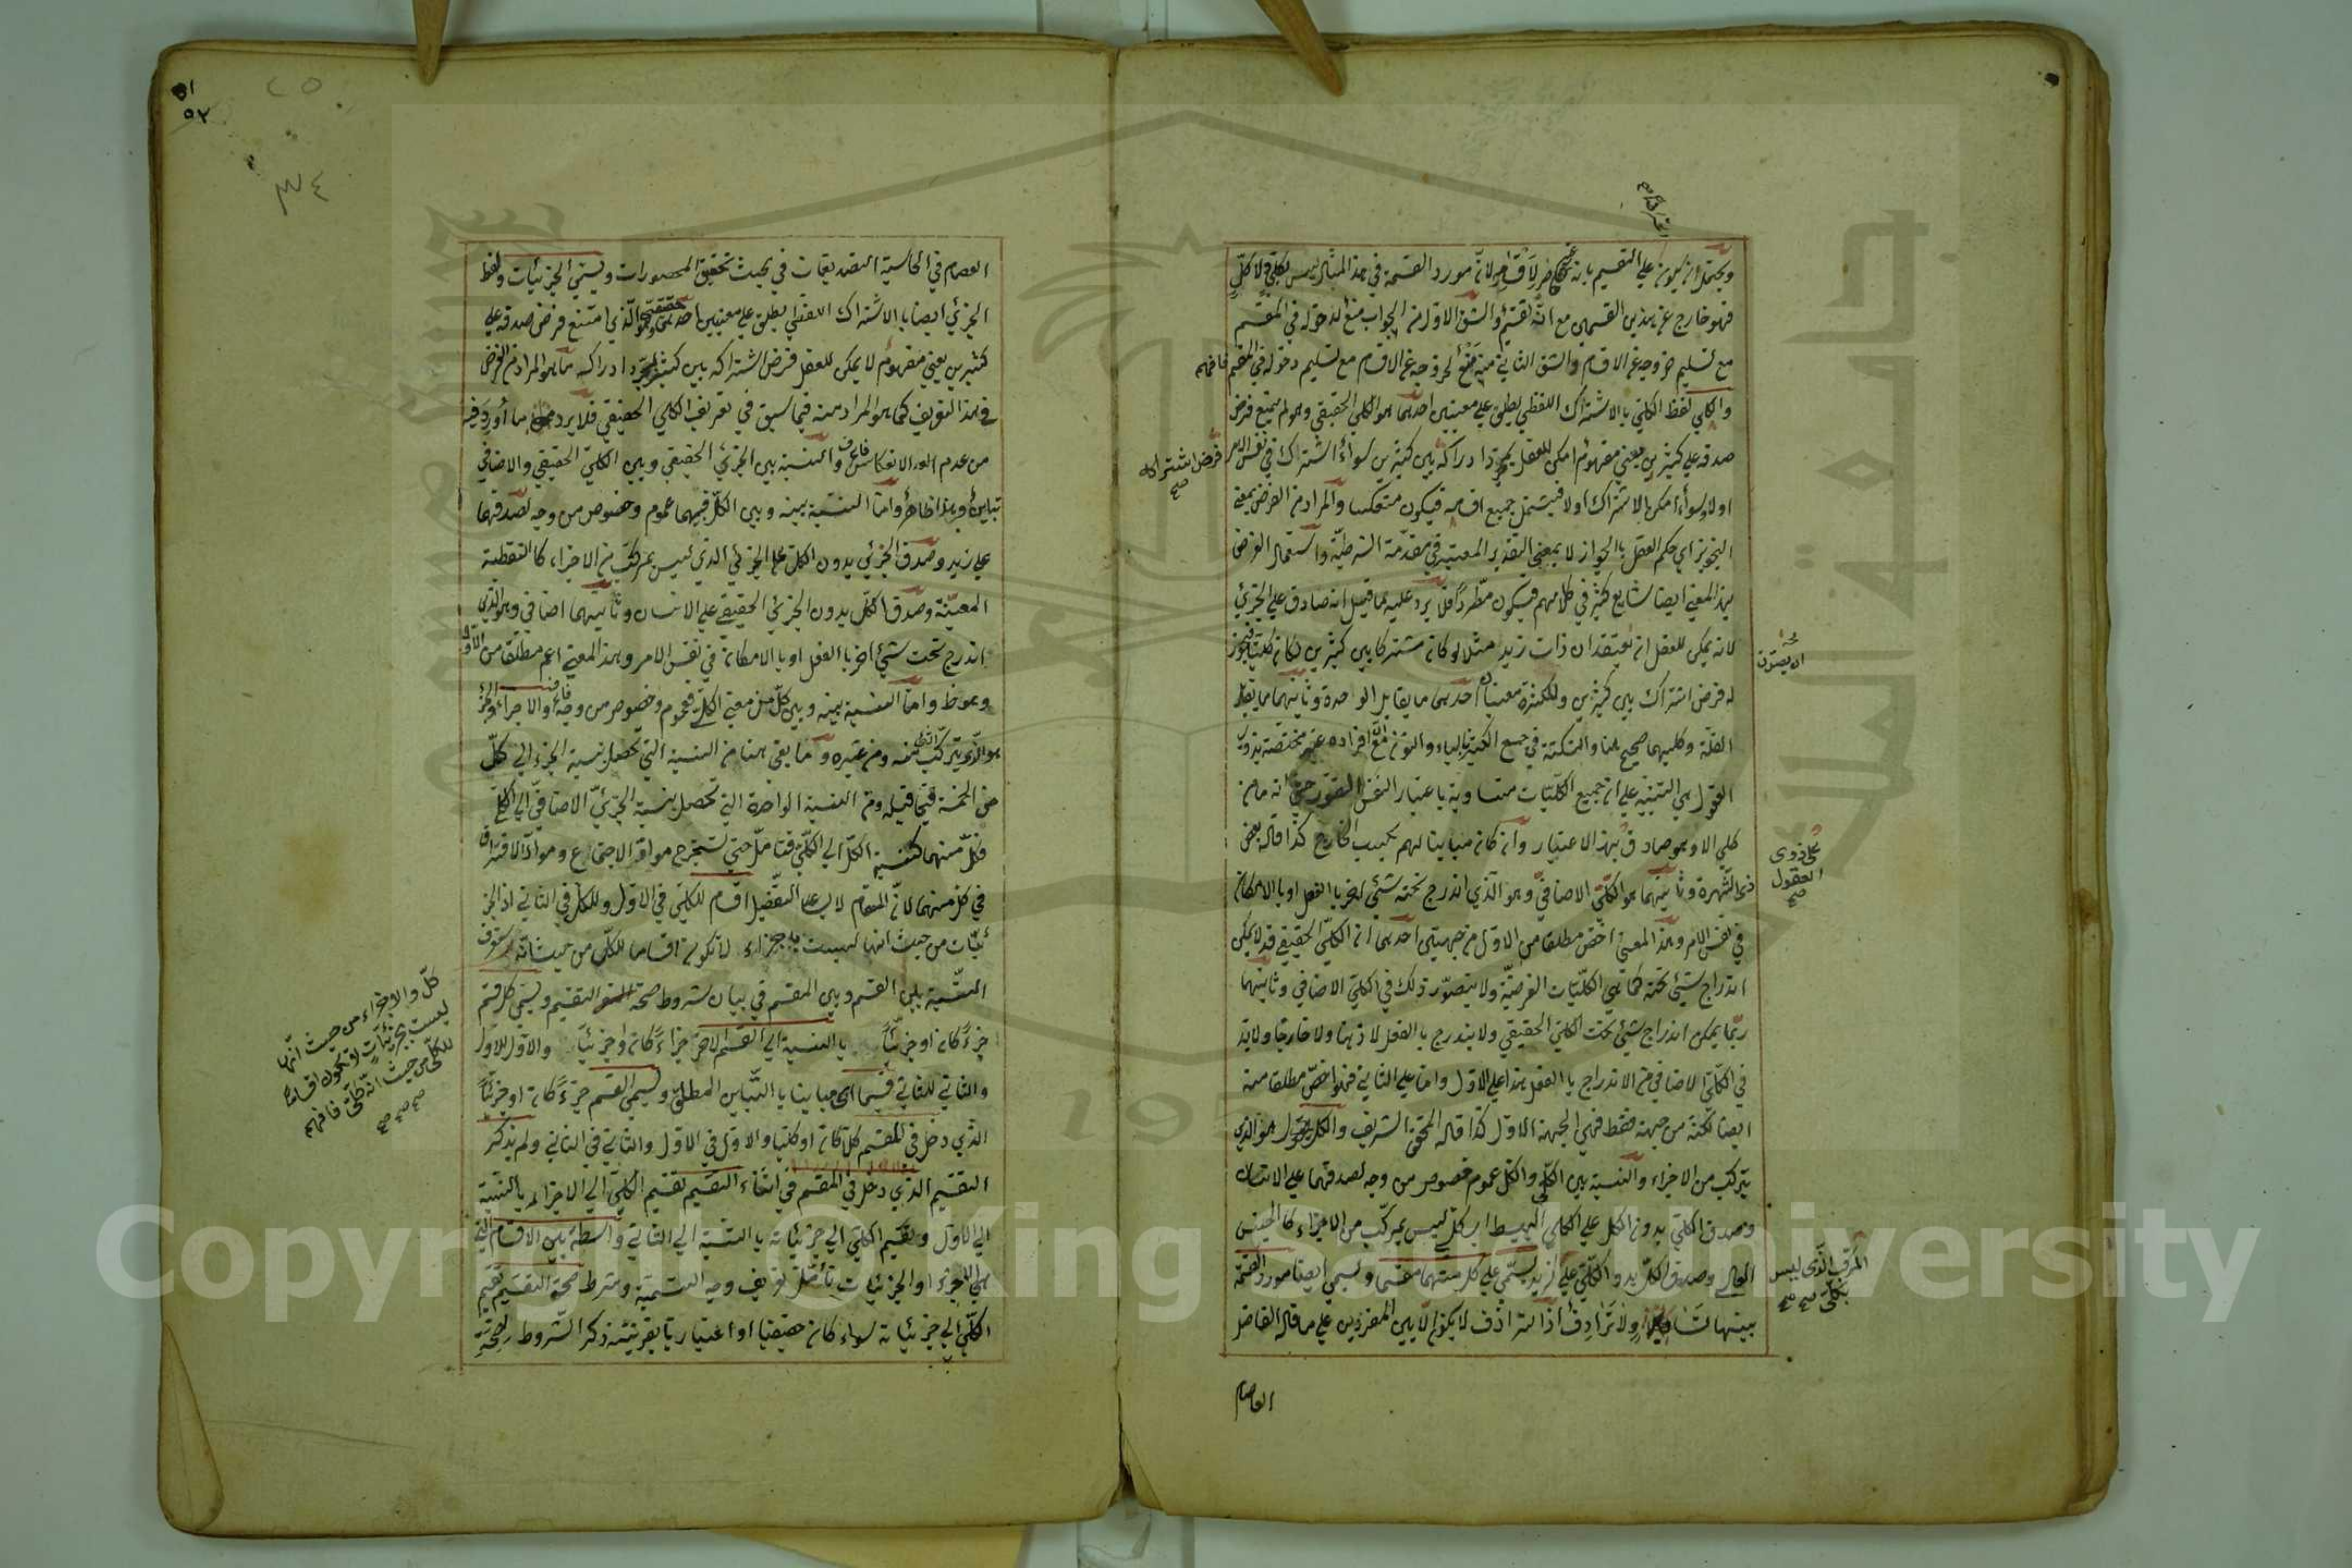 ويحتمل ان يكون على التقسيم بانه غير حاصر لاقسامه لان مورد القسمة في هذا المثال ليس بكلي ولا كل
فهو خارج عن هذين القسمين مع انه تقسيم والشق الاول من الجواب منع لدخوله في المقسم
مع تسليم خروجه عن الاقسام والشق الثاني منه منع لخروجه عن الاقسام مع تسليم دخوله في المقسم فافهم
والكلي لفظ الكلي بالاشتراك اللفظي يطلق على معنيين احدهما هو الكلي الحقيقي وهو لم يمتنع فرض
صدقه على كثيرين يعني مفهوم امكن للعقل بمجرد ادراكه بين كثيرين سواء اشترك في نفس الامر
فرض اشتراكه صح
اولا وسواء امكن الاشتراك اولا فيشتمل جميع اقسامه فيكون منعكسا والمراد من الفرض بمعنى
التجويز اي حكم العقل بالجواز لا بمعنى التقدير المعتبر في مقدمة الشرطية واستعمال الفرض
بهذا المعنى ايضا شايع كثير في كلامهم فيكون مطردا فلا يرد عليه ما قيل انه صادق على الجزئي
لانه يمكن للعقل ان يعتقد ان ذات زيد مثلا لو كان مشتركا بين كثيرين لكان كليا فيجوز
له فرض اشتراك بين كثيرين وللكثرة معنيان احدهما ما يقابل الوحدة وثانيهما ما يقابل
القلة وكليهما صحيح هنا والنكتة في جمع الكثير بالياء والنون مع افراده غير مختصة بذوي
العقول هي التنبيه على ان جميع الكليات متساوية باعتبار النفس التصور حتى انه ما من
على ذوي العقول صح
كلي الا وهو صادق بهذا الاعتبار وان كان مباينا لهم بحسب الخارج كذا قاله بعض
ذي الشهرة وثانيهما هو الكلي الاضافي وهو الذي اندرج تحته شيئ اخر بالفعل او بالامكان
في نفس الامر وهذا المعنى اخص مطلقا من الاول من جهتين احدهما ان الكلي الحقيقي قد لا يمكن
اندراج شيئ تحته كما في الكليات الفرضية ولا يتصور ذلك في الكلي الاضافي وثانيهما
ربما يمكن اندراج شيئ تحت الكلي الحقيقي ولا يندرج بالفعل لا ذهنا ولا خارجا ولا بد
في الكلي الاضافي من الاندراج بالفعل هذا على الاول واما على الثاني فهو اخص مطلقا منه
ايضا لكنه من جهة فقط فهي الجهة الاول كذا قاله المحقق الشريف والكل هو الذي
يتركب من الاجزاء والنسبة بين الكلي والكل عموم وخصوص من وجه لصدقهما على الانسان
وصدق الكلي بدون الكل على الكلي البسيط اي كلي ليس بمركب من الاجزاء كالجنس
العالي وصدق الكل بدون الكلي على زيد يسمى على كل منهما مقسما ويسمى ايضا مورد القسمة
المركب الذي ليس بكلي صح صح
بينهما تساو ولا ترادف اذ الترادف لا يكون الا بين المفردين على ما قاله الفاضل
العصام
العصام في الحاشية التصديقات في بحث تحقيق المحصورات ويسمى الجزئيات ولفظ
الجزئي ايضا بالاشتراك اللفظي يطلق على معنيين احدهما حقيقي وهو الذي امتنع فرض صدقه على
كثيرين يعني مفهوم لا يمكن للعقل فرض اشتراكه بين كثيرين بمجرد ادراكه ما هو المراد من الفرض
في هذا التعريف كما هو المراد منه فيما سبق في تعريف الكلي الحقيقي فلا يرد ما اورد فيه
من عدم الانعكاس فاعرف والنسبة بين الجزئي الحقيقي وبين الكلي الحقيقي والاضافي
تباين وهذا ظاهر واما النسبة بينه وبين الكل فبينهما عموم وخصوص من وجه لصدقهما
على زيد وصدق الجزئي بدون الكل على الجزئي الذي ليس بمركب من الاجزاء كالنقطة
المعينة وصدق الكل بدون الجزئي الحقيقي على الانسان وثانيهما اضافي وهو الذي
اندرج تحت شيئ اخر بالفعل او بالامكان في نفس الامر وهذا المعنى اعم مطلقا من الاول
واما النسبة بينه وبين كل من معنى الكلي فعموم وخصوص من وجه والاجزاء والجزء
هو الذي يتركب منه ومن غيره وما بقي هنا من النسبة التي تحصل بنسبة الجزء الى كل
من الخمسة فيما قبله ومن النسبة الواحدة التي تحصل بنسبة الجزئي الاضافي الى الكل
فكل منهما كنسبة الكل الى الكلي فتأمل حتى تستخرج مواد الاجتماع ومواد الافتراق
في كل منهما لان المقام لا يسع التفصيل اقسام للكلي في الاول وللكل في الثاني اذ الجز
ئيات من حيث انها ليست باجزاء لا تكون اقساما للكل من حيث انه
كل والاجزاء من حيث انها
ليست بجزئيات لا تكون اقساما
للكلي من حيث انه كلي فافهم
صح صح صح
النسبة بين القسم وبين المقسم في بيان شروط صحة التقسيم ويسمى كل قسم
جزءا كان او جزئيا بالنسبة الى القسم الاخر جزاء كان او جزئيا والاول للاول
والثاني للثاني قسيما اي مباينا بالتباين المطلق ويسمى القسم جزءا كان او جزئيا
الذي دخل في المقسم كلا كان او كليا والاول في الاول والثاني في الثاني ولم يذكر
التقسيم الذي دخل في المقسم في اثناء التقسيم تقسيم الكل الى الاجزاء بالنسبة
الى الاول وتقسيم الكلي الى جزئياته بالنسبة الى الثاني واسطة بين الاقسام التي
هي الاجزاء او الجزئيات تأمل تعريف وجه التسمية وشرط صحة التقسيم تقسيم
الكلي الى جزئياته سواء كان حقيقيا او اعتباريا بقرينة ذكر الشروط لصحة